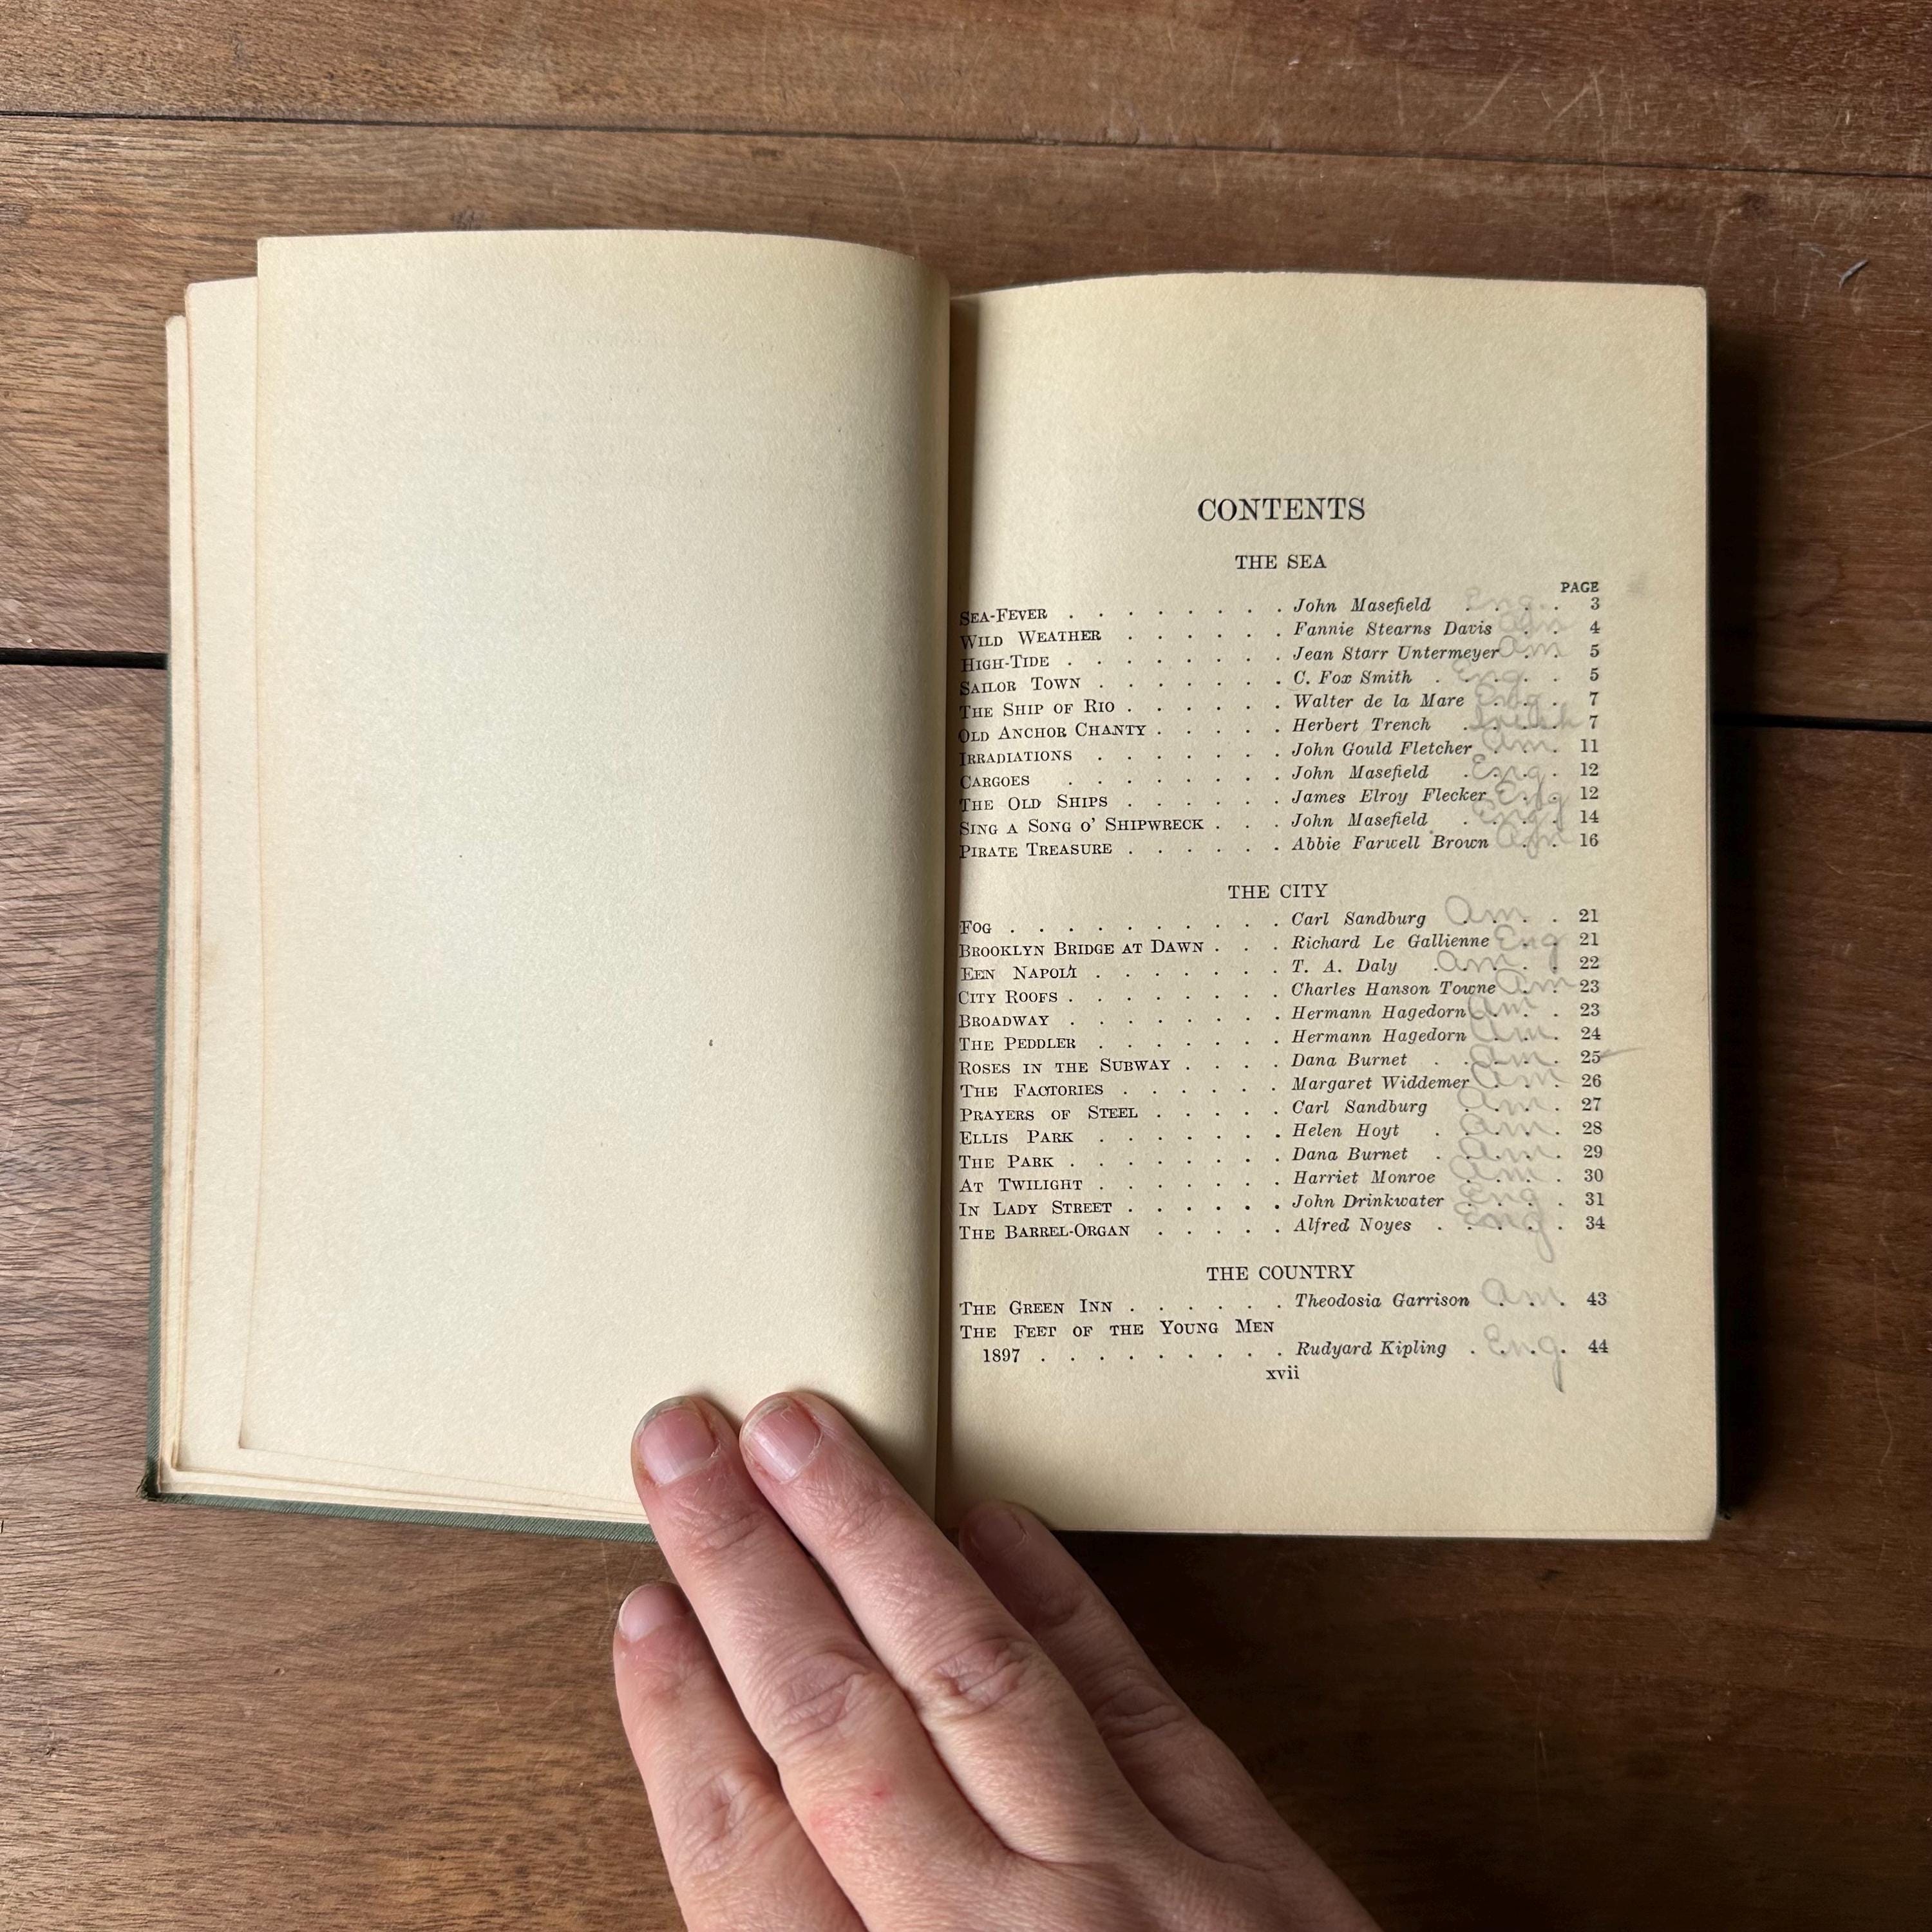 CONTENTS
THE SEA
PAGE
SEA-FEVER . . . . . . . . John Masefield Eng. . . . 3
WILD WEATHER . . . . . . Fannie Stearns Davis Am . . 4
HIGH-TIDE . . . . . . . . Jean Starr Untermeyer Am . . 5
SAILOR TOWN . . . . . . . C. Fox Smith . Eng . . . 5
THE SHIP OF RIO . . . . . . Walter de la Mare Eng . . 7
OLD ANCHOR CHANTY . . . . . Herbert Trench . . . . 7
IRRADIATIONS . . . . . . . John Gould Fletcher Am . . 11
CARGOES . . . . . . . . John Masefield . Eng. . . 12
THE OLD SHIPS . . . . . . James Elroy Flecker Eng . . 12
SING A SONG O' SHIPWRECK . . . John Masefield . Eng . . 14
PIRATE TREASURE . . . . . . Abbie Farwell Brown Am . . 16
THE CITY
FOG . . . . . . . . . . Carl Sandburg Am . . . 21
BROOKLYN BRIDGE AT DAWN . . . Richard Le Gallienne Eng . . 21
EEN NAPOLI . . . . . . . T. A. Daly . Am . . . 22
CITY ROOFS . . . . . . . . Charles Hanson Towne Am . . 23
BROADWAY . . . . . . . . Hermann Hagedorn Am . . 23
THE PEDDLER . . . . . . . Hermann Hagedorn Am . . 24
ROSES IN THE SUBWAY . . . . Dana Burnet . . Am . . 25
THE FACTORIES . . . . . . Margaret Widdemer Am . . 26
PRAYERS OF STEEL . . . . . Carl Sandburg . Am . . 27
ELLIS PARK . . . . . . . Helen Hoyt . Am . . . 28
THE PARK . . . . . . . . Dana Burnet . Am . . . 29
AT TWILIGHT . . . . . . . Harriet Monroe Am . . . 30
IN LADY STREET . . . . . . John Drinkwater Eng . . . 31
THE BARREL-ORGAN . . . . . Alfred Noyes . Eng . . . 34
THE COUNTRY
THE GREEN INN . . . . . . Theodosia Garrison Am . . . 43
THE FEET OF THE YOUNG MEN
1897 . . . . . . . . . Rudyard Kipling . Eng. . . 44
xvii